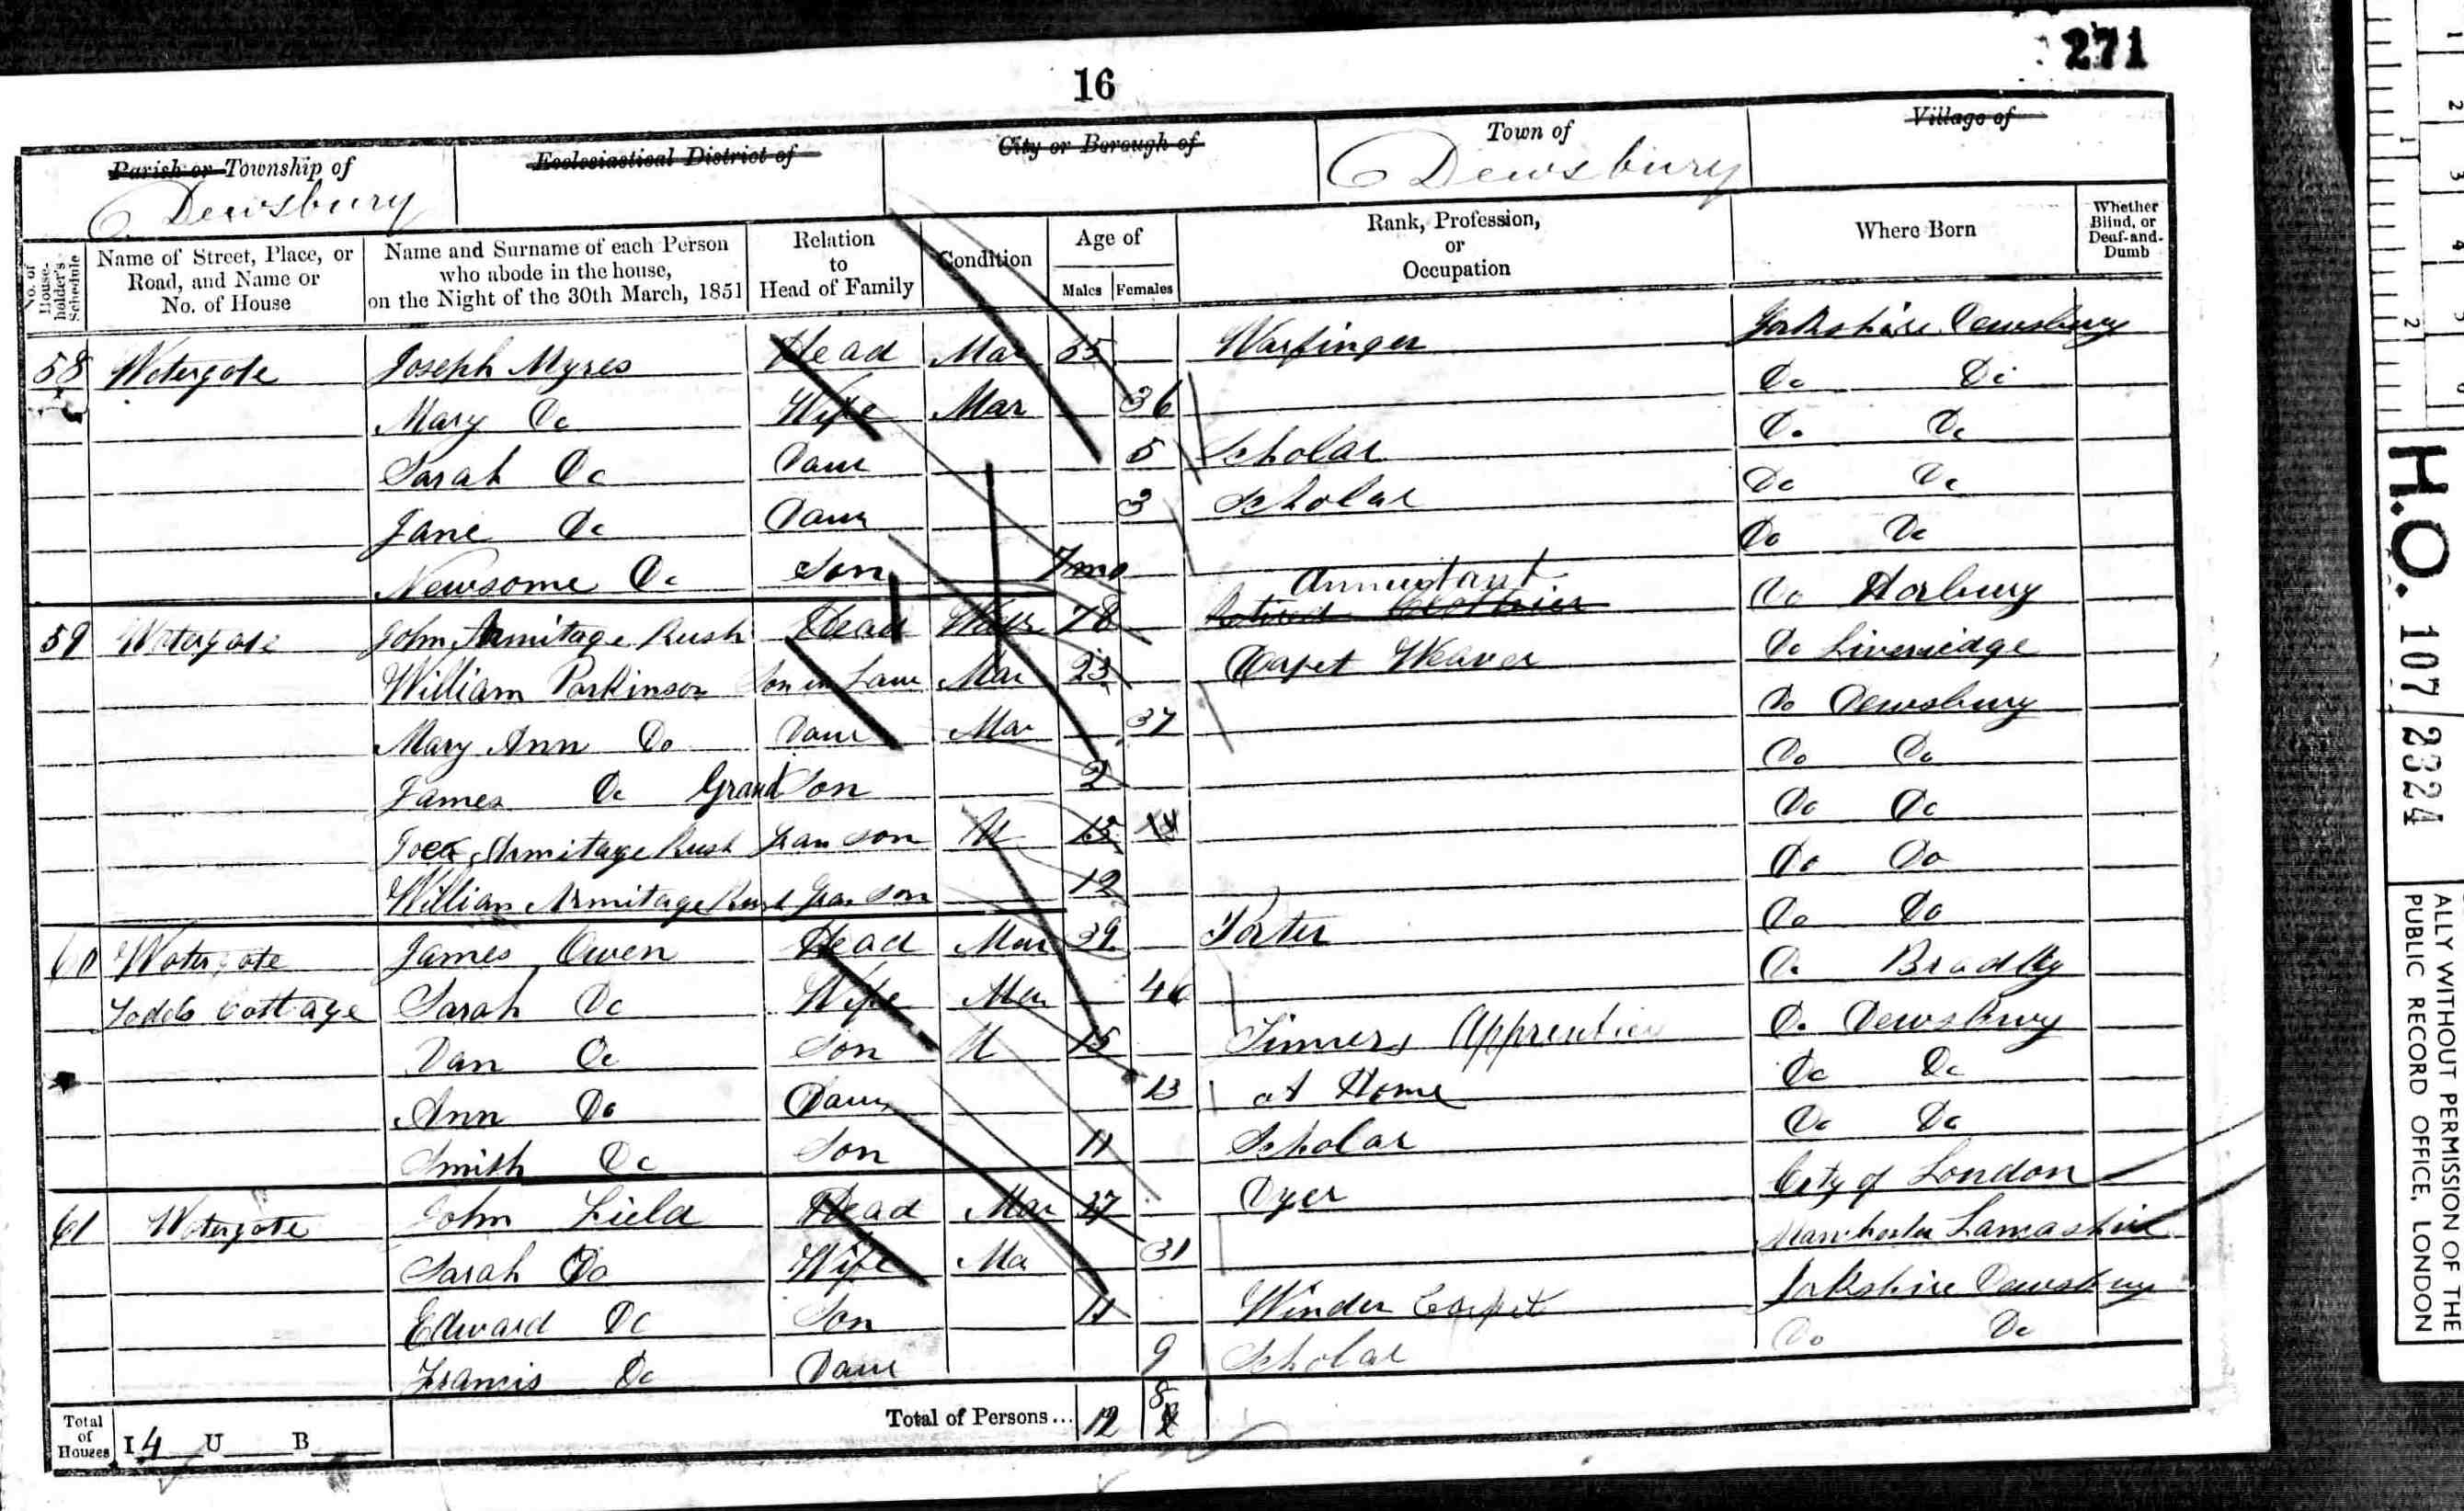 271
16
Parish or Township of
Dewsbury
Ecclesiastical District of
City or Borough of
Town of
Dewsbury
Village of
No. of House-holder's Schedule
Name of Street, Place, or Road, and Name or No. of House
Name and Surname of each Person who abode in the house, on the Night of the 30th March, 1851
Relation to Head of Family
Condition
Age of
Males Females
Rank, Profession, or Occupation
Where Born
Whether Blind, or Deaf-and-Dumb
58 Watergate Joseph Myres Head Mar 35 Warfinger Yorkshire Dewsbury
Mary Do Wife Mar 36 Do Do
Sarah Do Daur 5 Scholar Do Do
Jane Do Daur 3 Scholar Do Do
Newsome Do Son 7mo Do Do
Annuitant
59 Watergate John Armitage Rush Head Widr 78 Retired Clothier Do Horbury
William Parkinson Son in Law Mar 23 Carpet Weaver Do Liversedge
Mary Ann Do Daur Mar 37 Do Dewsbury
James Do Grand Son 2 Do Do
Armitage Rush Gran Son U 15 14 Do Do
William Armitage Rush Gran Son 12 Do Do
60 Watergate James Owen Head Mar 39 Porter Do Do
Todds Cottage Sarah Do Wife Mar 46 Do Bradley
Dan Do Son U 15 Tinners Apprentice Do Dewsbury
Ann Do Daur 13 at Home Do Do
Smith Do Son 11 Scholar Do Do
61 Watergate John Field Head Mar 27 Dyer City of London
Sarah Do Wife Ma 31 Manchester Lancashire
Edward Do Son 11 Winder Carpet Yorkshire Dewsbury
Francis Do Daur 9 Scholar Do Do
Total of Houses I 4 U B Total of Persons... 12 8
H.O. 107/2324
ALLY WITHOUT PERMISSION OF THE
PUBLIC RECORD OFFICE, LONDON